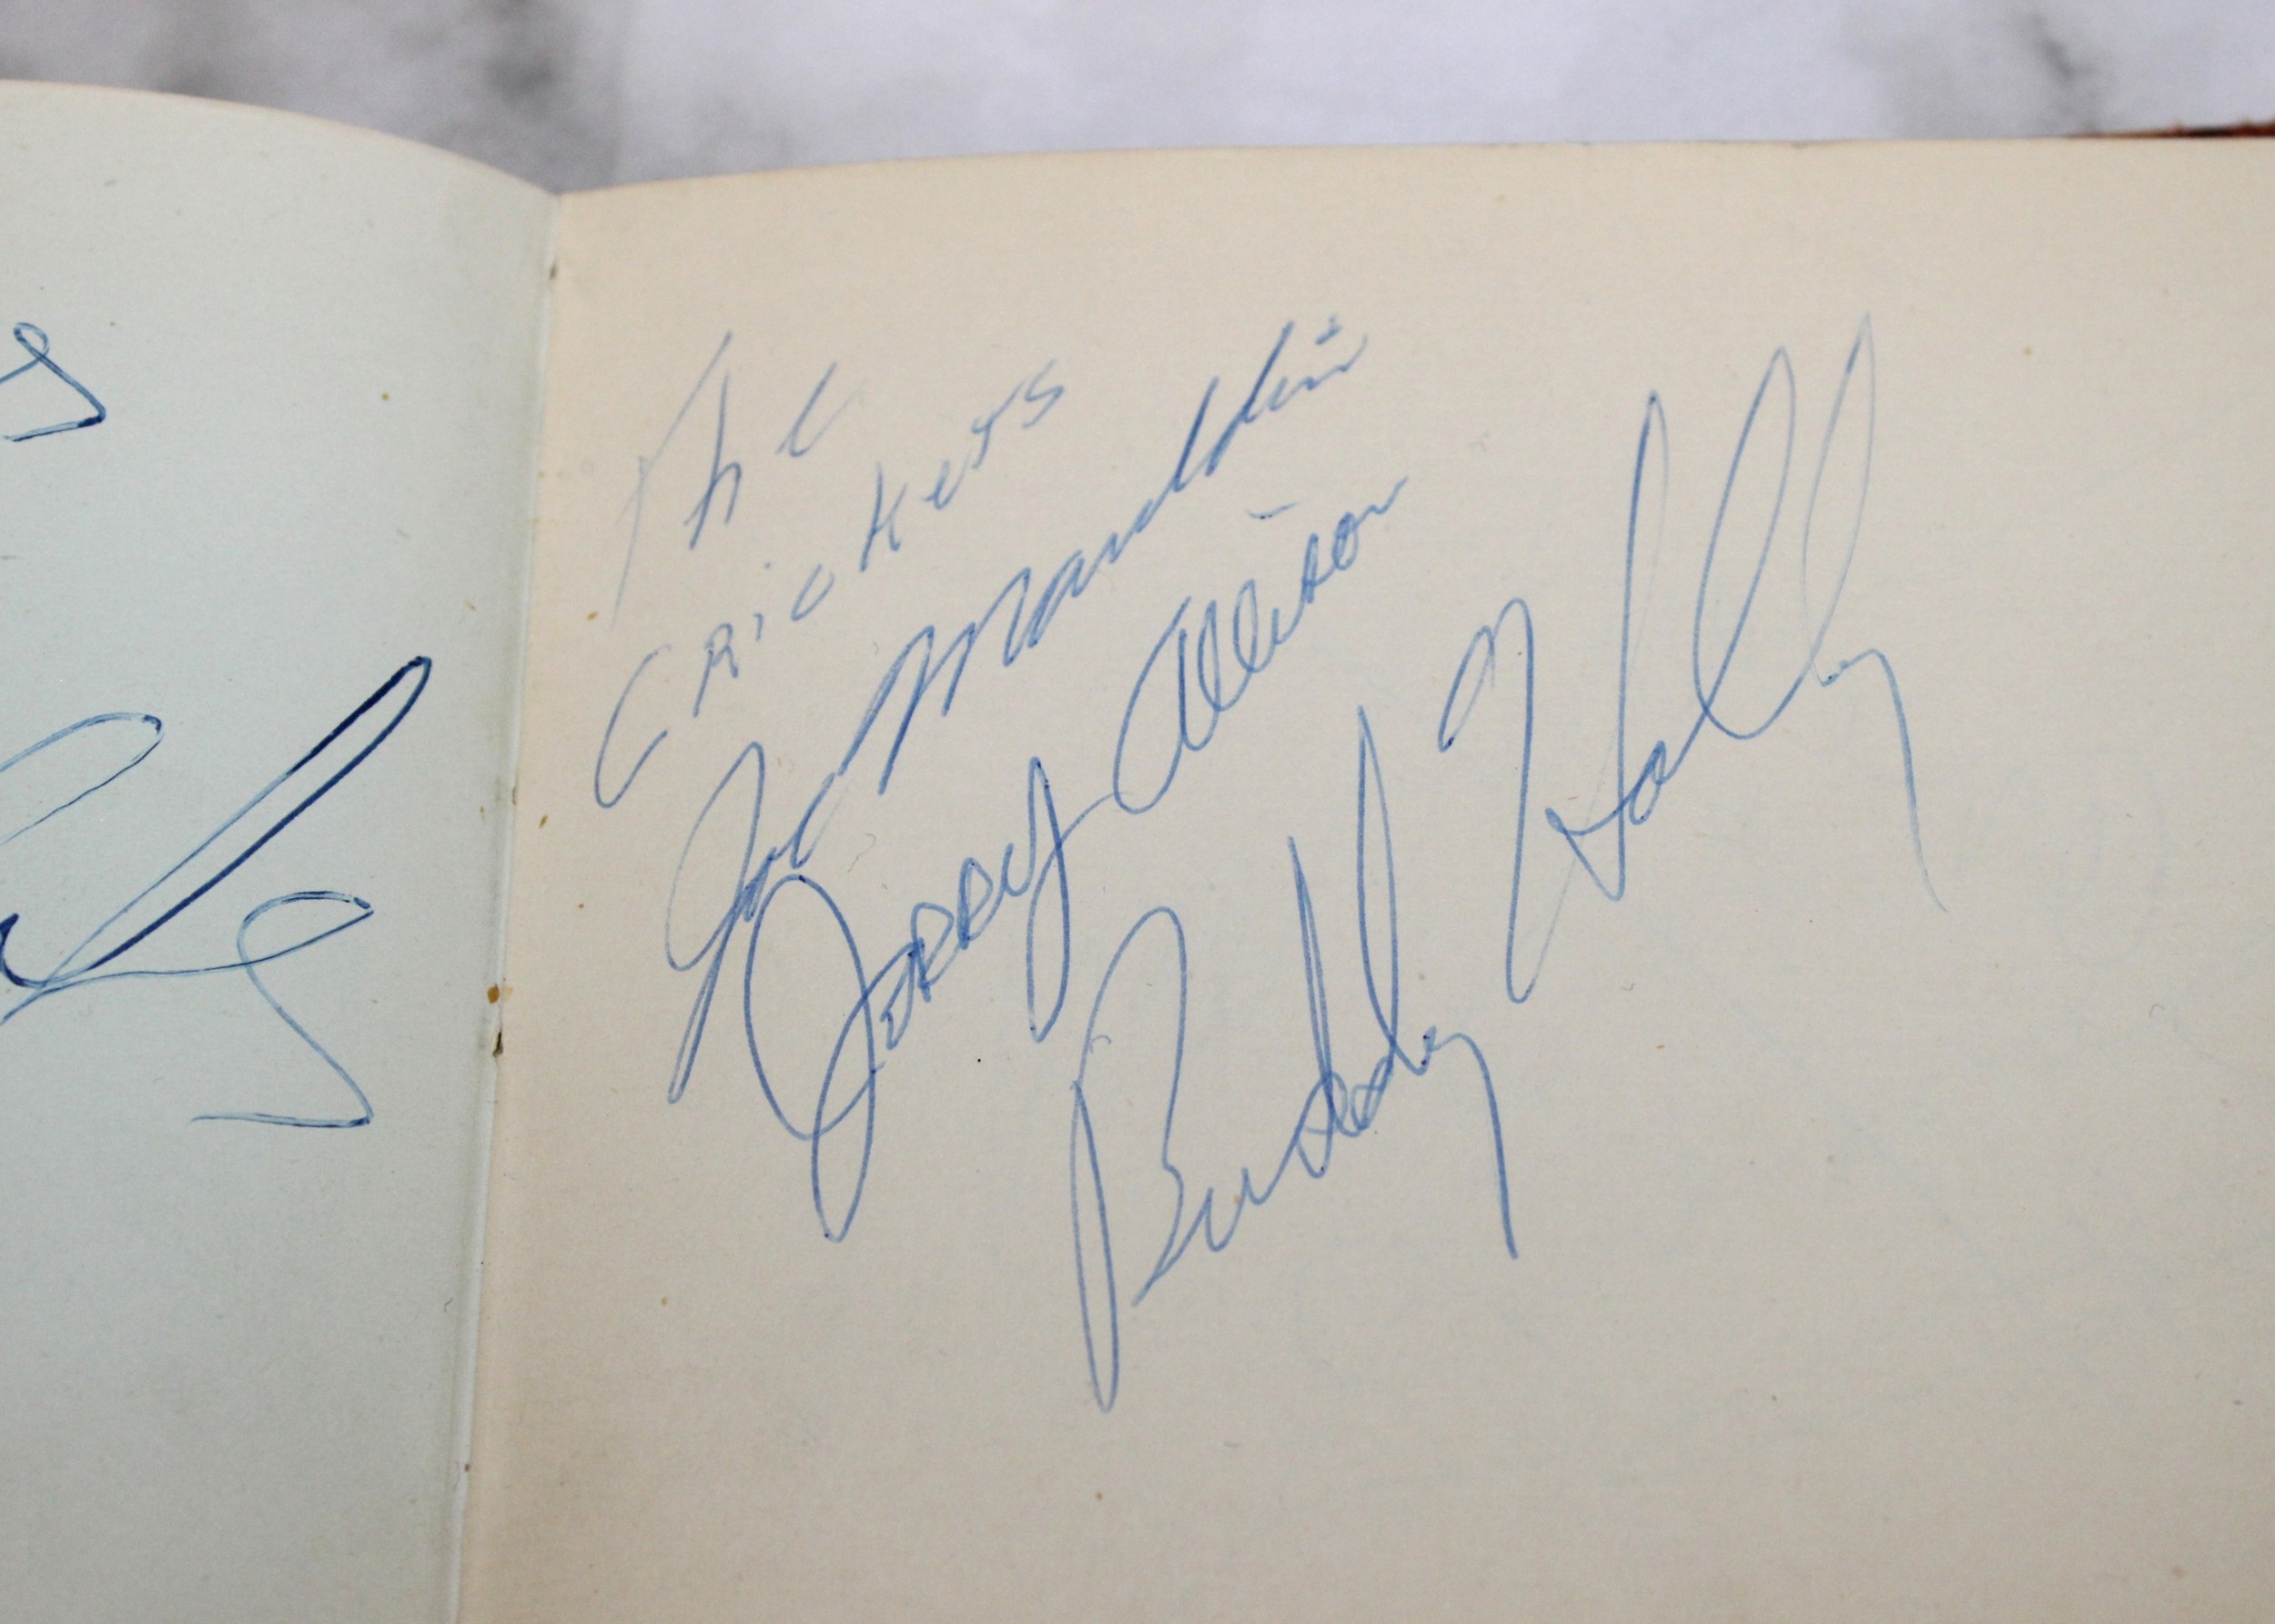 The
Crickets
Joe Mauldin
Jerry Allison
Buddy Holly